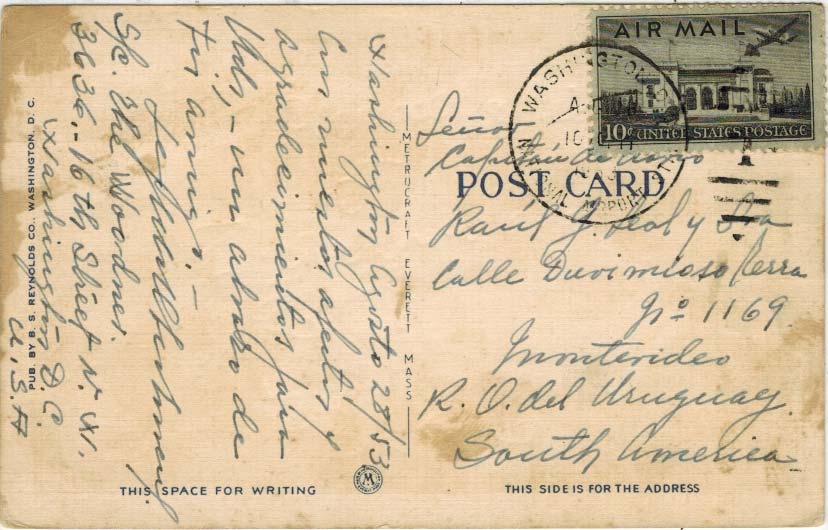 AIR MAIL
10¢ UNITED STATES POSTAGE
WASHINGTON
NATIONAL AIRPORT
POST CARD
Señor
Capitán de navio
Raúl y Sra
Calle
Nº 1169
Montevideo
R. O. del Uruguay.
South America
THIS SIDE IS FOR THE ADDRESS
METROCRAFT EVERETT MASS
Washington Agosto 28/53
Con nuestros afectos y
agradecimientos para
Uds, - un abrazo de
tus amigos. -
S/c. The Woodner.
3636 - 16th Street N. W.
Washington D.C.
U.S.A
THIS SPACE FOR WRITING
M
PUB. BY B. S. REYNOLDS CO., WASHINGTON, D. C.